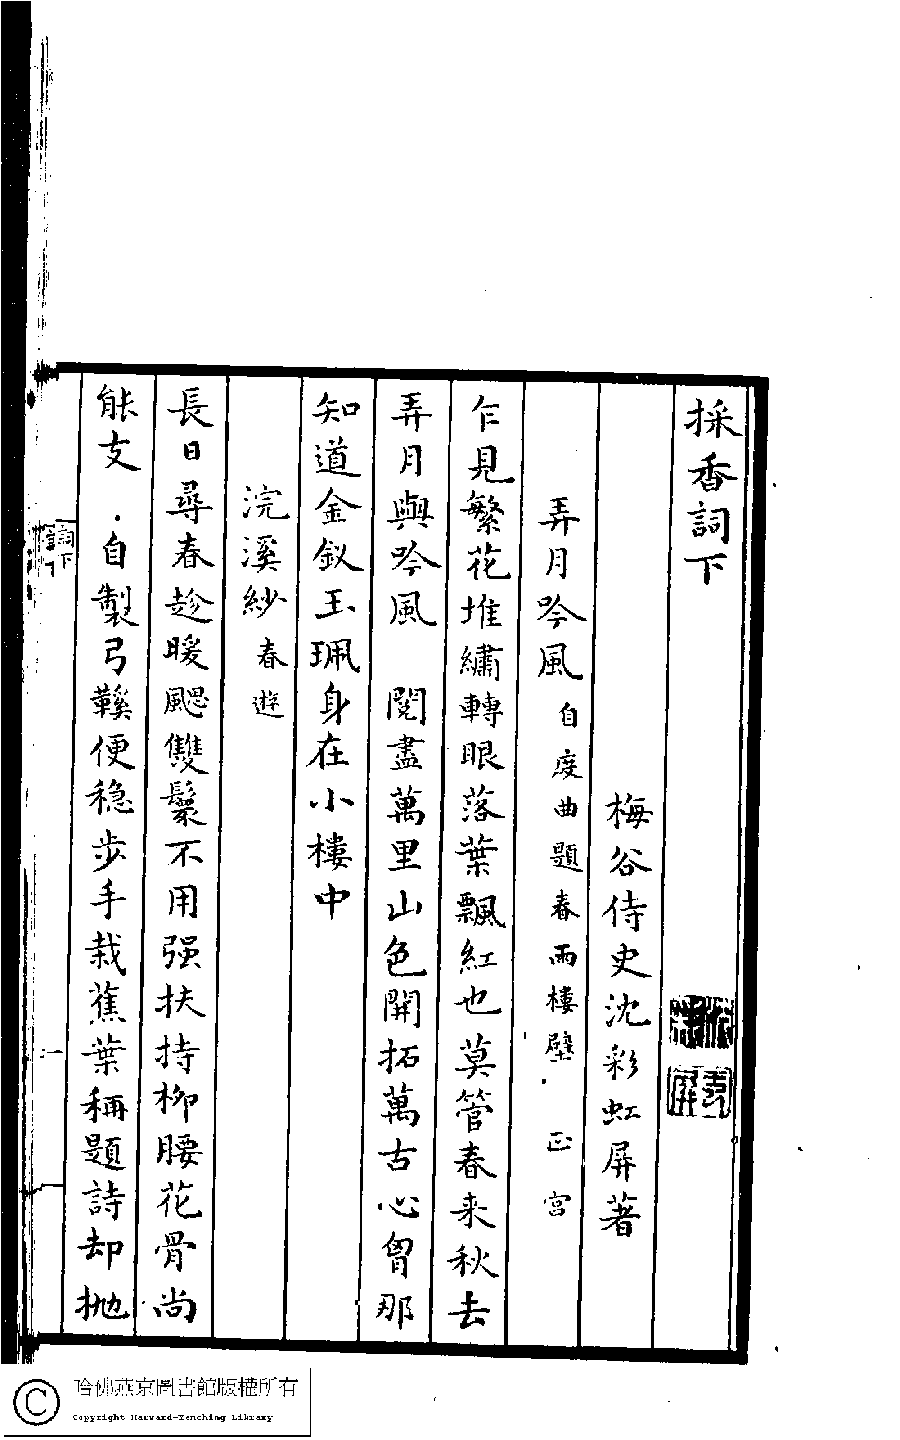 採香詞下
梅谷侍史沈彩虹屏著
弄月吟風 自度曲題春雨樓壁 正宮
乍見繁花堆繡轉眼落葉飄紅也莫管春来秋去
弄月與吟風 閱盡萬里山色開拓萬古心胷那
知道金釵玉珮身在小樓中
浣溪紗 春遊
長日尋春趁暖颸雙鬟不用强扶持柳腰花骨尚
能支 自製弓鞵便稳步手栽蕉葉称題詩却抛
詞下
哈佛燕京圖書館版權所有
Copyright Harvard-Yenching Library